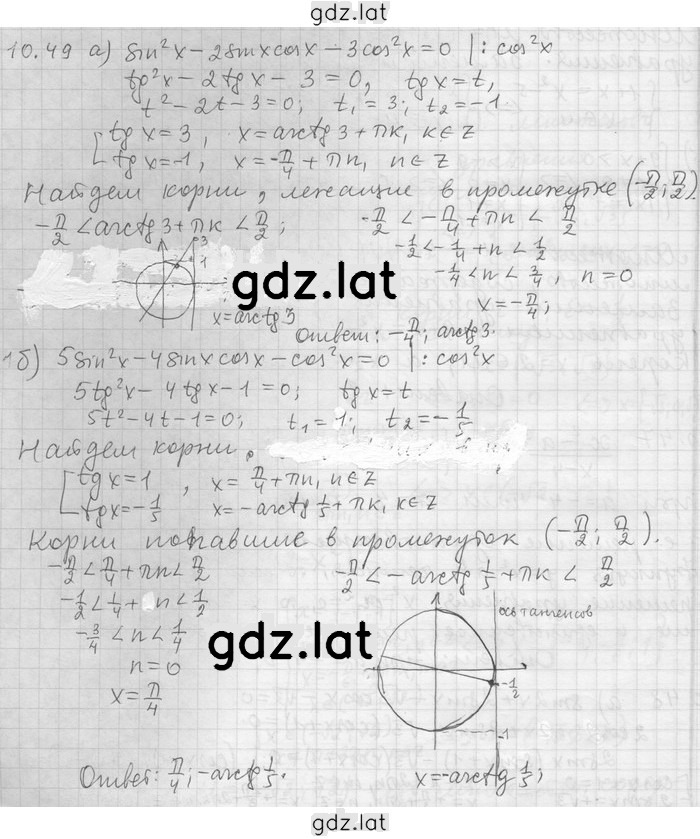 gdz.lat
10.49 а) sin²x – 2sinxcosx – 3cos²x = 0 |: cos²x
tg²x – 2tgx – 3 = 0, tgx = t,
t² – 2t – 3 = 0; t₁ = 3; t₂ = –1
[ tgx = 3, x = arctg3 + πk, k∈Z
tgx = –1, x = –π/4 + πn, n∈Z
Найдем корни, лежащие в промежутке (–π/2; π/2)
–π/2 < arctg3 + πk < π/2; –π/2 < –π/4 + πn < π/2
–1/2 < –1/4 + n < 1/2
3
1
–1/4 < n < 3/4, n = 0
gdz.lat
x = –π/4;
x = arctg3
Ответ: –π/4; arctg3.
1б) 5sin²x – 4sinxcosx – cos²x = 0 |: cos²x
5tg²x – 4tgx – 1 = 0; tgx = t
5t² – 4t – 1 = 0; t₁ = 1; t₂ = –1/5
Найдем корни,
[ tgx = 1, x = π/4 + πn, n∈Z
tgx = –1/5 x = –arctg1/5 + πk, k∈Z
Корни попавшие в промежуток (–π/2; π/2).
–π/2 < π/4 + πn < π/2 –π/2 < –arctg1/5 + πk < π/2
–1/2 < 1/4 + n < 1/2
ось тангенсов
–3/4 < n < 1/4
gdz.lat
n = 0
–1/2
x = π/4
–1
Ответ: π/4; –arctg1/5. x = –arctg1/5;
gdz.lat